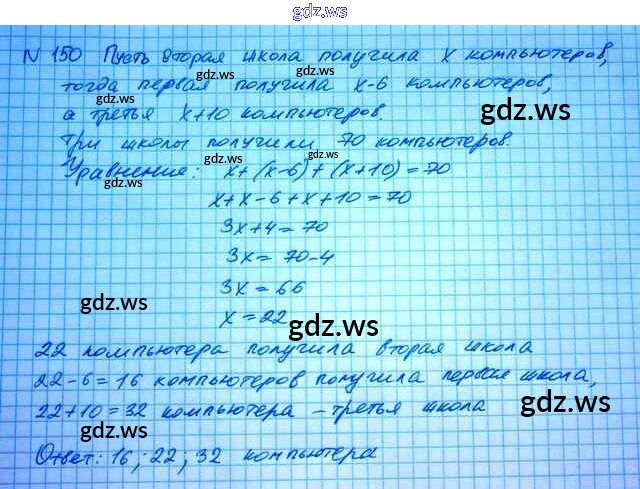 gdz.ws
N 150 Пусть вторая школа получила x компьютеров,
тогда первая получила x-6 компьютеров,
а третья x+10 компьютеров.
Три школы получили 70 компьютеров.
Уравнение: x+(x-6)+(x+10)=70
x+x-6+x+10=70
3x+4=70
3x=70-4
3x=66
x=22
22 компьютера получила вторая школа
22-6=16 компьютеров получила первая школа,
22+10=32 компьютера - третья школа
Ответ: 16; 22; 32 компьютера
gdz.ws
gdz.ws
gdz.ws
gdz.ws
gdz.ws
gdz.ws
gdz.ws
gdz.ws
gdz.ws
gdz.ws
gdz.ws
gdz.ws
gdz.ws